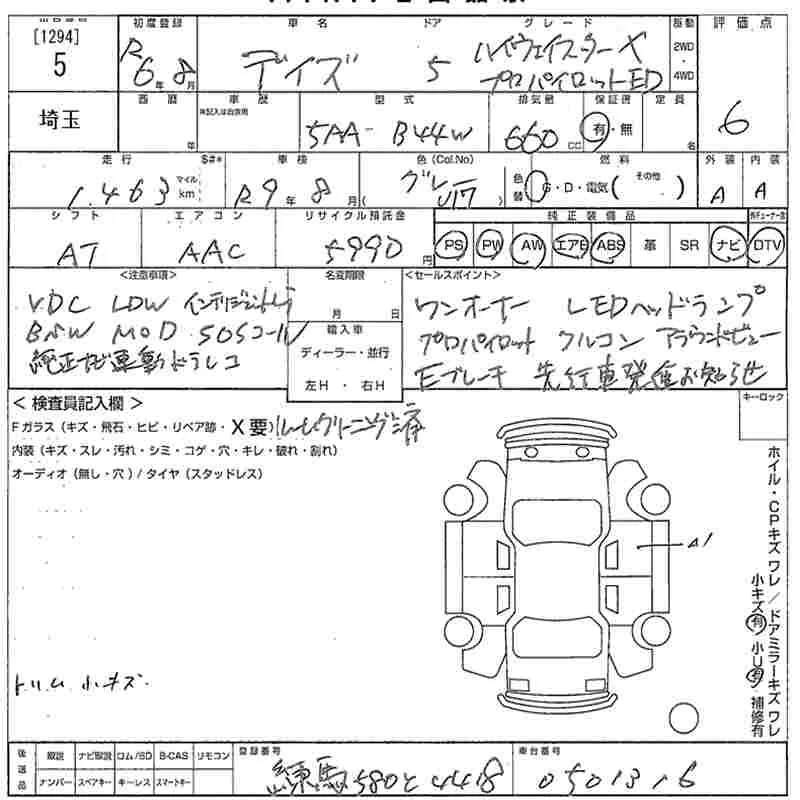 [1294]
5
初度登録
R6年8月
車名
デイズ
ドア
5
グレード
ハイウェイスターX
プロパイロットED
駆動
2WD
4WD
評価点
6
埼玉
西暦
年
車歴
型式
5AA-B44W
排気量
660CC
保証書
有・無
定員
名
走行
1.463
マイル
km
S#*
車検
R9年8月
色(Col.No)
(グレー
色替
燃料
G・D・電気(その他)
外装
A
内装
A
シフト
AT
エアコン
AAC
リサイクル預託金
5990円
純正装備品
PS PW AW エアB ABS 革 SR ナビ DTV
<注意事項>
VDC LDW
BSW MOD SOSコール
純正ナビ連動ドラレコ
名変期限
月 日
輸入車
ディーラー・並行
左H・右H
<セールスポイント>
ワンオーナー LEDヘッドランプ
プロパイロット クルコン アラウンドビュー
Eブレーキ 先行車発進お知らせ
<検査員記入欄>
Fガラス(キズ・飛石・ヒビ・リペア跡・X要)ルームクリーニング済
内装(キズ・スレ・汚れ・シミ・コゲ・穴・キレ・破れ・割れ)
オーディオ(無し・穴)/タイヤ(スタッドレス)
トリム小キズ
キーロック
A1
ホイル・CPキズワレ/ドアミラーキズワレ
小キズ有 小U有 補修有
後送品
取説 ナビ取説 ロム/SD B-CAS リモコン
ナンバー スペアキー キーレス スマートキー
登録番号
練馬580と4418
車台番号
0501316